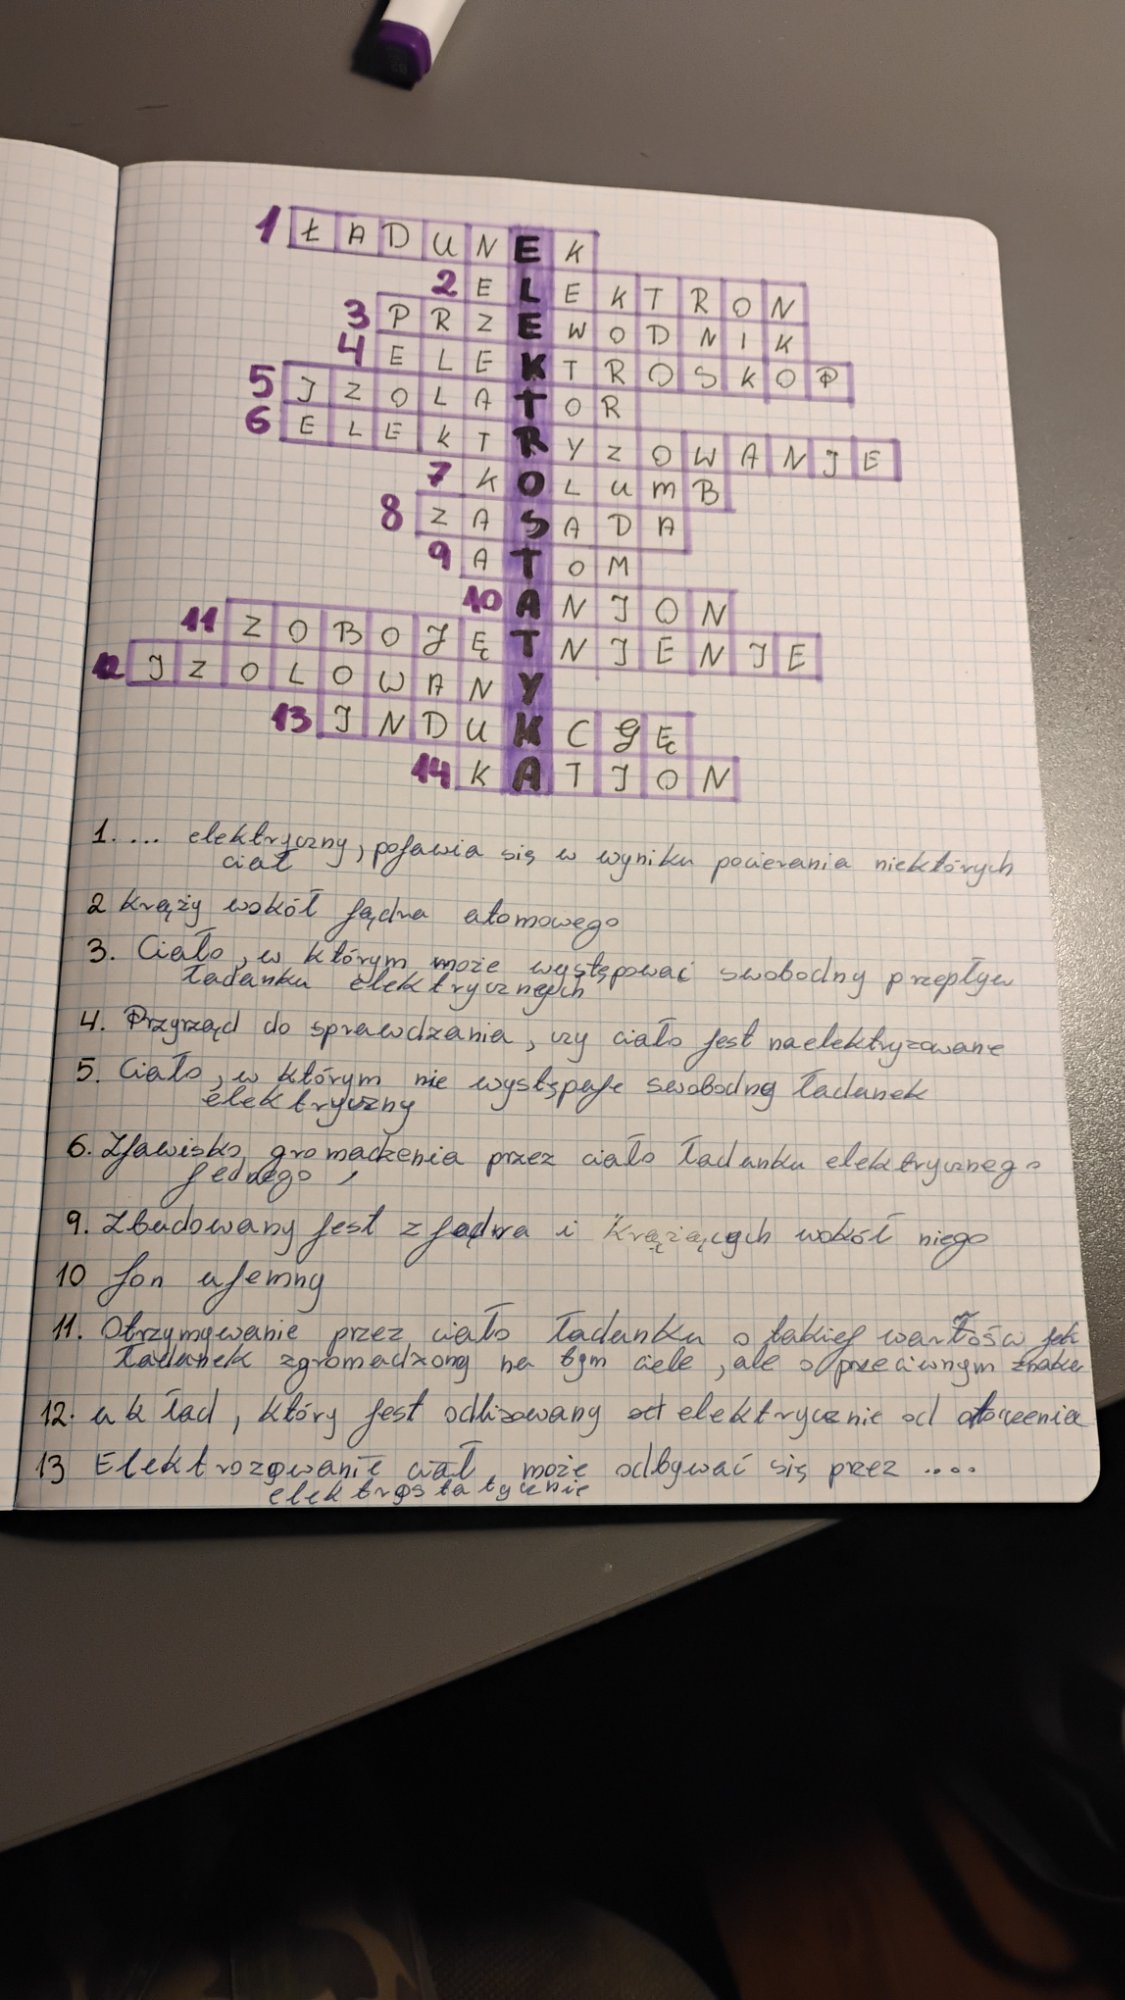 1 ŁADUNEK
2 ELEKTRON
3 PRZEWODNIK
4 ELEKTROSKOP
5 IZOLATOR
6 ELEKTRYZOWANIE
7 KOLUMB
8 ZASADA
9 ATOM
10 ANION
11 ZOBOJĘTNIENIE
12 IZOLOWANY
13 INDUKCJĘ
14 KATION
1. ... elektryczny, pojawia się w wyniku pocierania niektórych
ciał
2 krąży wokół jądra atomowego
3. Ciało, w którym może występować swobodny przepływ
ładunku elektrycznych
4. Przyrząd do sprawdzania, czy ciało jest naelektryzowane
5. Ciało, w którym nie występuje swobodny ładunek
elektryczny
6. Zjawisko gromadzenia przez ciało ładunku elektrycznego
jednego,
9. Zbudowany jest z jądra i krążących wokół niego
10 Jon ujemny
11. Otrzymywanie przez ciało ładunku o takiej jak
ładunek zgromadzony na tym ciele, ale o przeciwnym znaku
12. układ, który jest elektrycznie od otoczenia
13 ciał może odbywać się przez ....